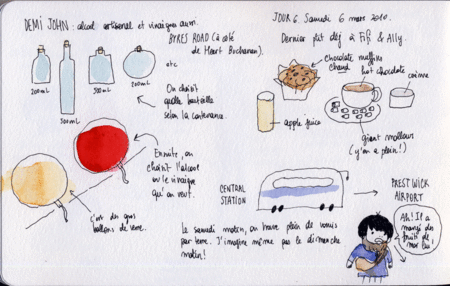 DEMI JOHN : alcool artisanal et vinaigres aussi.
BYRES ROAD (à côté
de Heart Buchanan).
200mL
500mL
500mL
700mL
etc
On choisit
quelle bouteille
selon la contenance.
Ensuite, on
choisit l'alcool
ou le vinaigre
qu'on veut.
c'est des gros
ballons de verre.
JOUR 6. Samedi 6 mars 2010.
Dernier ptit déj à Fif & Ally.
chocolate muffins
chaud
hot chocolate
crème
apple juice
giant mallows
(y'en a plein!)
CENTRAL
STATION
PRESTWICK
AIRPORT
Le samedi matin, on trouve plein de vomis
par terre. J'imagine même pas le dimanche
matin!
Ah! Il a
mangé des
fruits de
mer lui!